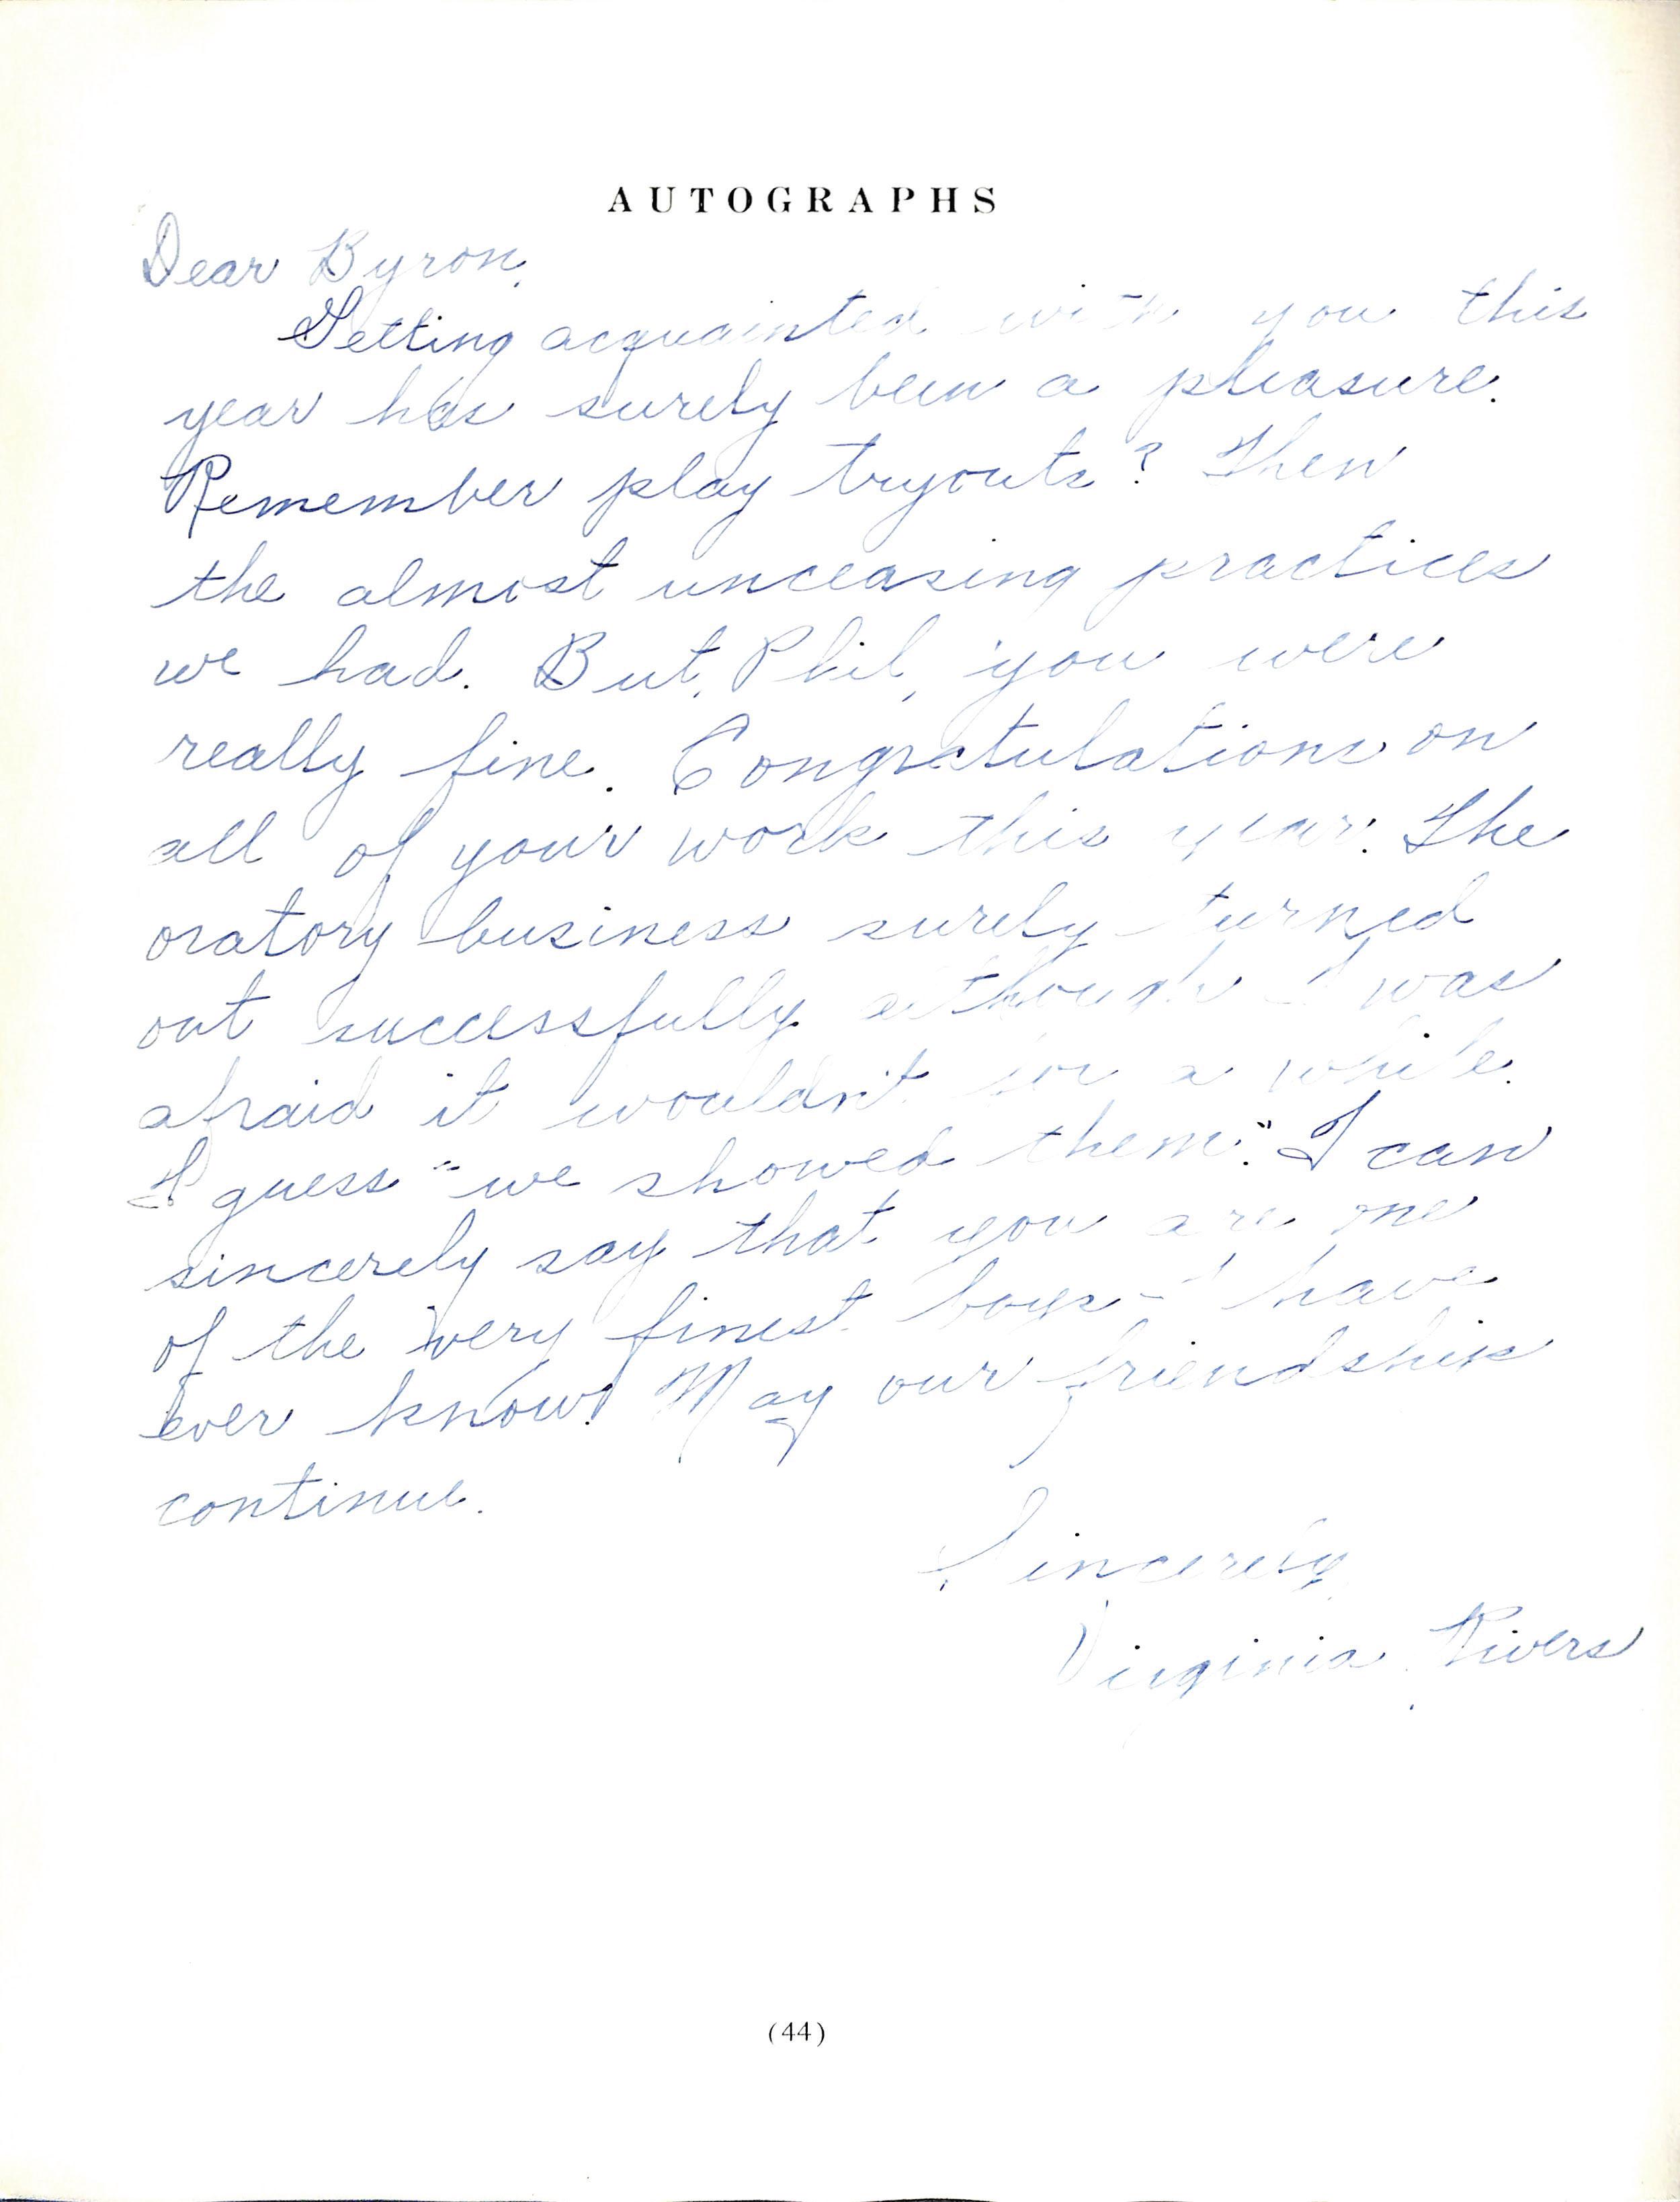 AUTOGRAPHS
Dear Byron,
Getting acquainted with you this
year has surely been a pleasure.
Remember play tryouts? Then
the almost unceasing practices
we had. But, Phil, you were
really fine. Congratulations on
all of your work this year. The
oratory business surely turned
out successfully although I was
afraid it wouldn't for a while.
I guess "we showed them." I can
sincerely say that you are one
of the very finest boys I have
ever know. May our friendship
continue.
Sincerely,
Virginia Rivers
(44)